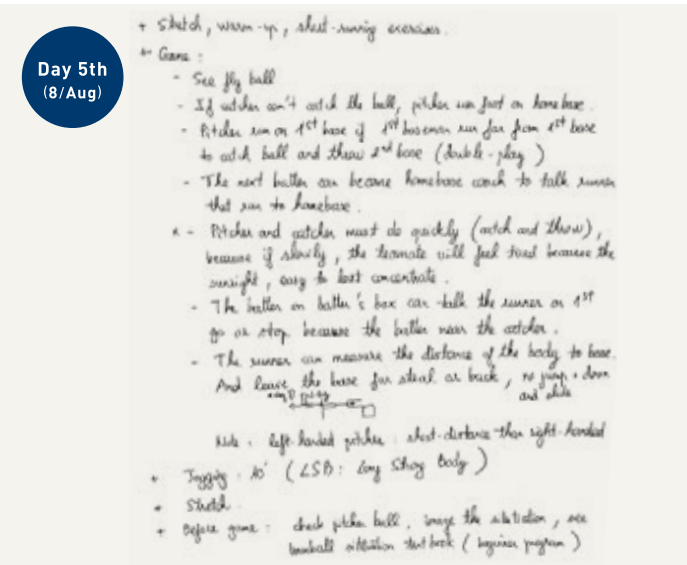 Day 5th
(8/Aug)
+ Stretch, warm-up, short-running exercises.
+ Game :
- See fly ball
- If catcher can't catch the ball, pitcher run fast on homebase.
- Pitcher run on 1st base if 1st baseman run far from 1st base
to catch ball and throw 2nd base (double-play)
- The next batter can become homebase coach to talk runner
that run to homebase.
* - Pitcher and catcher must do quickly (catch and throw),
because if slowly, the teamate will feel tired because the
sunsight, easy to lost concentrate.
- The batter on batter's box can talk the runner on 1st
go or stop because the batter near the catcher.
- The runner can measure the distance of the body to base.
And leave the base for steal or back, no jump + down
and slide
Note : left-handed pitcher : short-distance than right-handed
+ Jogging : 10' (LSB: Long Strong Body)
+ Stretch.
+ Before game : check pitcher ball, image the situation, see
baseball situation text book (beginner program)